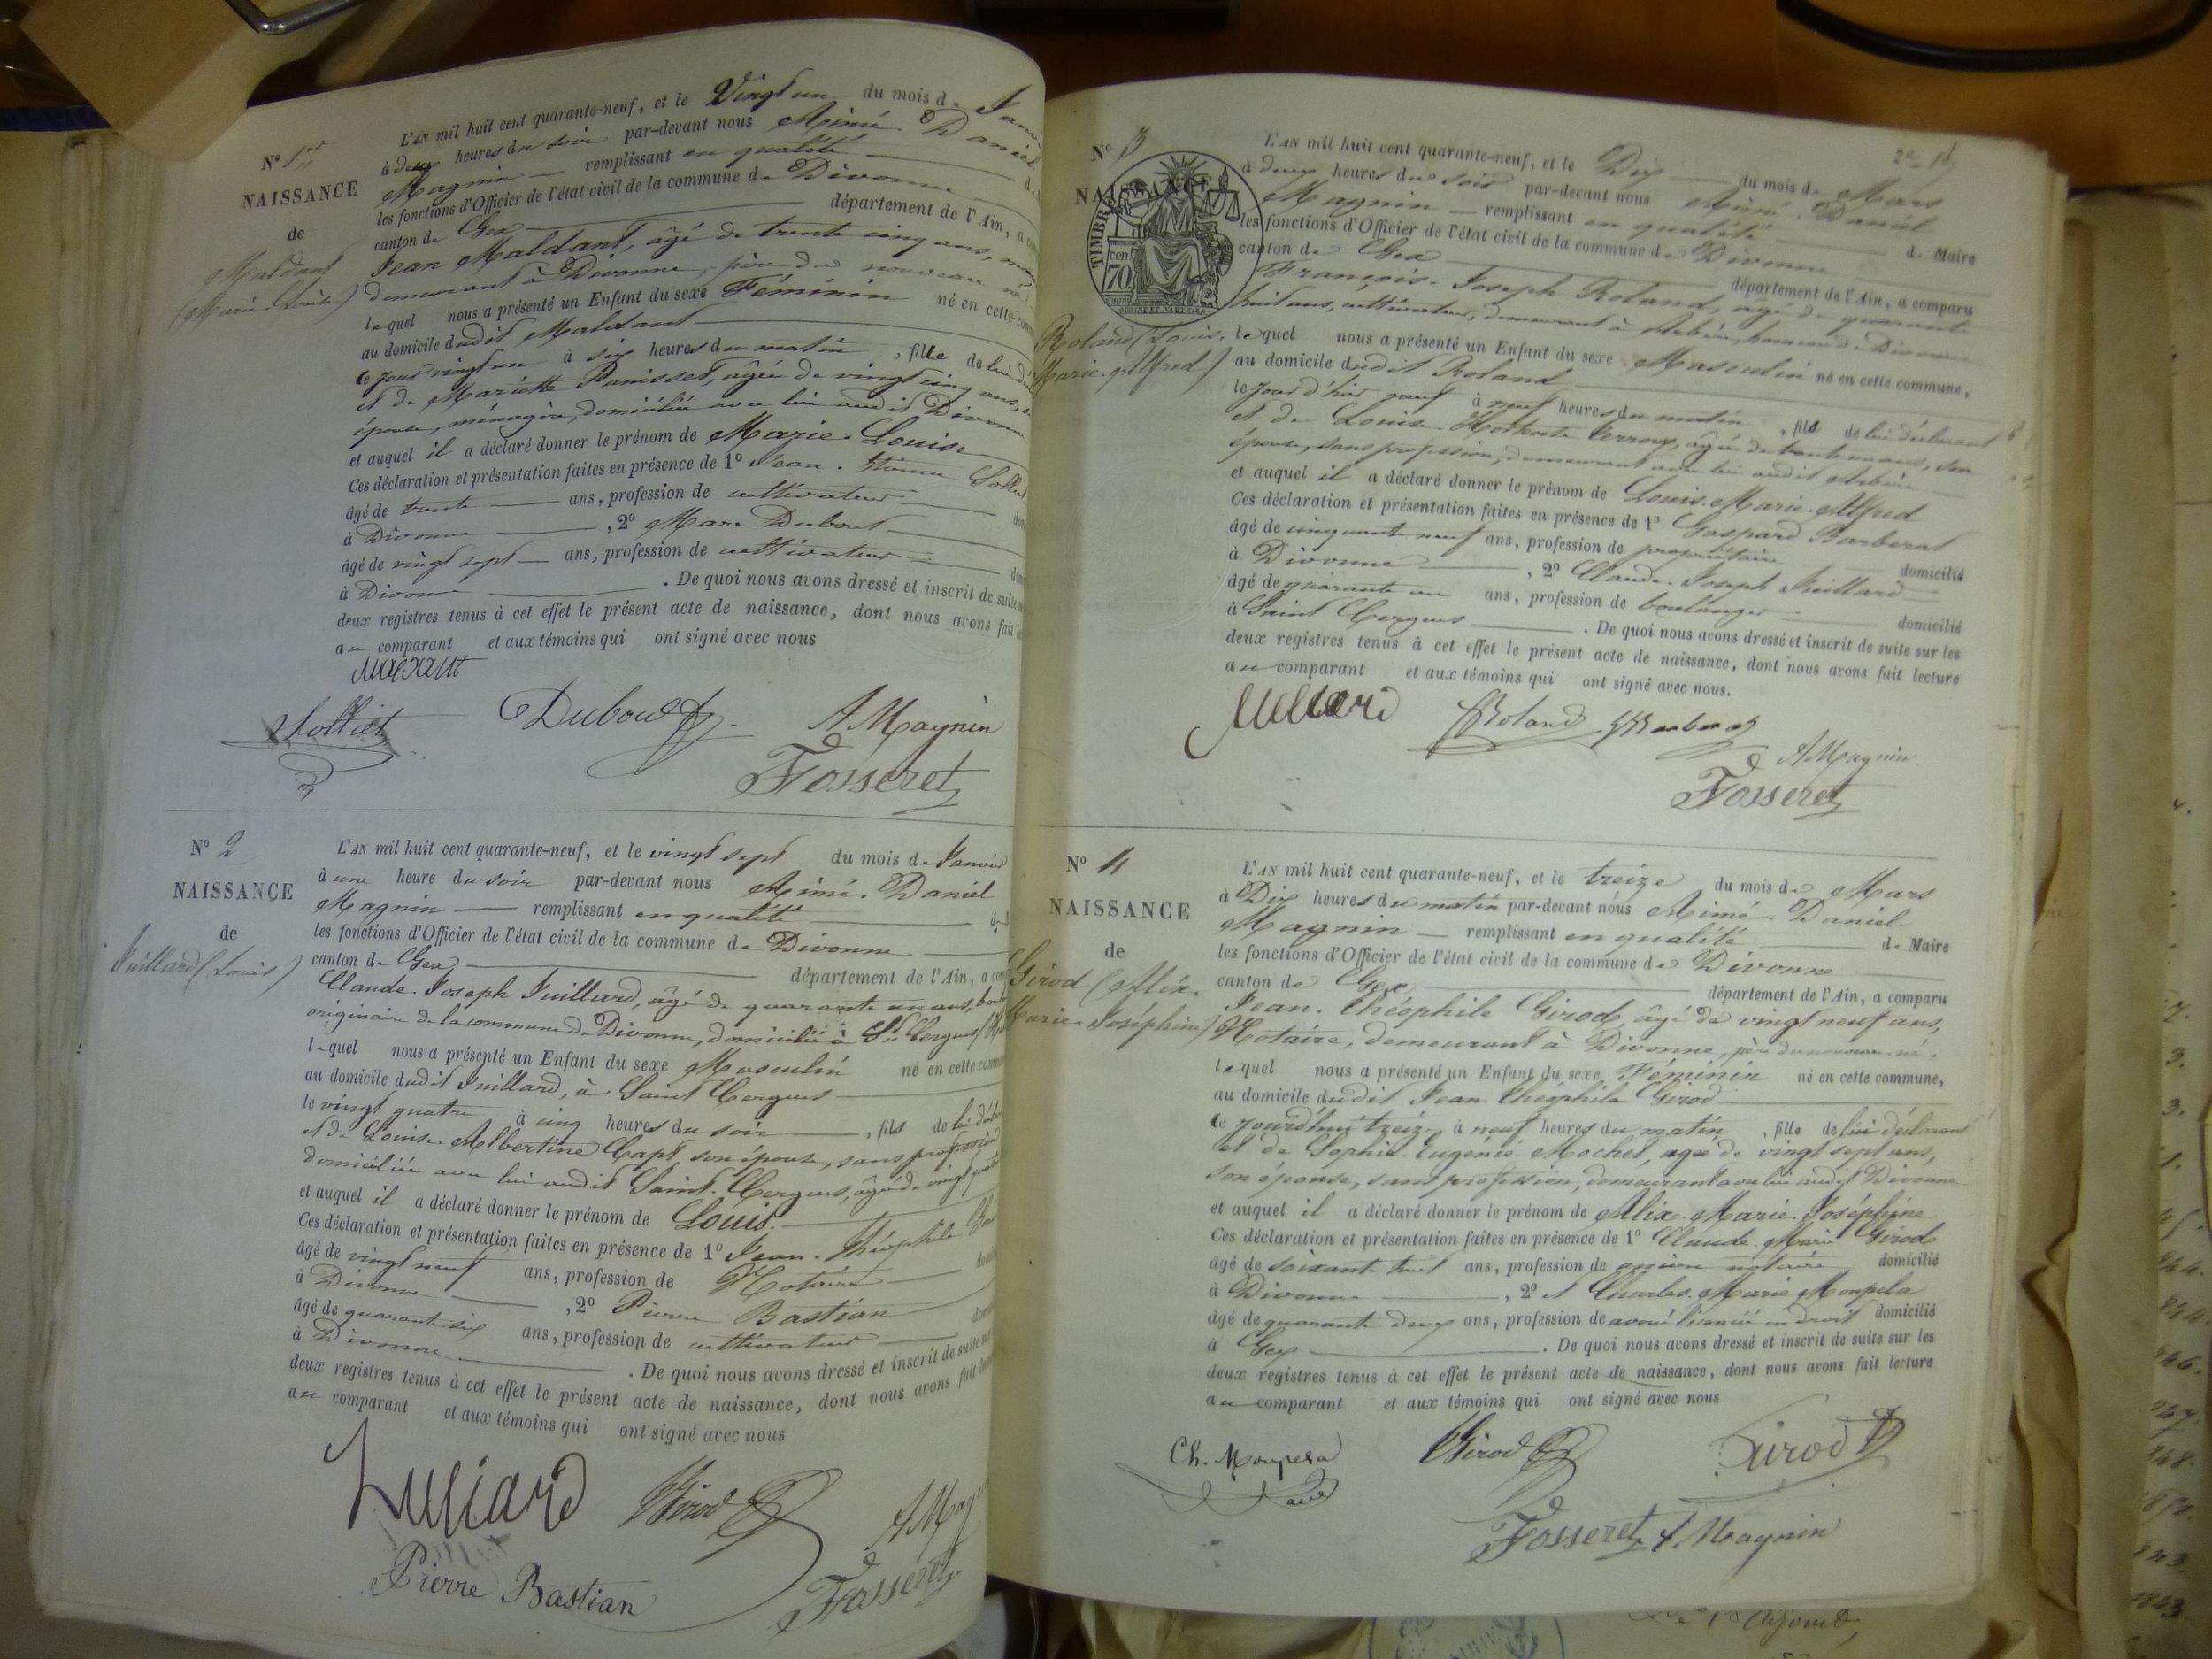 L'AN mil huit cent quarante-neuf, et le Vingt un du mois de
à deux heures du soir par-devant nous Aimé. Daniel
N° 1er
Magnin remplissant en qualité
NAISSANCE
les fonctions d'Officier de l'état civil de la commune de Divonne
de
canton de Gex département de l'Ain, a
Maldant
Jean Maldant, âgé de trente cinq ans,
(Marie-Louise)
demeurant à Divonne, père du nouveau né
lequel nous a présenté un Enfant du sexe Féminin né en cette
au domicile dudit Maldant
ce jour vingt un à six heures du matin, fille de lui
et de Mariette Panisset, âgée de vingt cinq ans,
épouse, ménagère, domiciliée avec lui audit Divonne
et auquel il a déclaré donner le prénom de Marie-Louise
Ces déclaration et présentation faites en présence de 1° Jean.
âgé de trente ans, profession de cultivateur
à Divonne, 2° Marc Dubout
âgé de vingt sept ans, profession de cultivateur
à Divonne. De quoi nous avons dressé et inscrit de suite
deux registres tenus à cet effet le présent acte de naissance, dont nous avons fait
au comparant et aux témoins qui ont signé avec nous
Solliet Dubout A Magnin
Fosseret
N° 2
L'AN mil huit cent quarante-neuf, et le vingt sept du mois de Janvier
à une heure du soir par-devant nous Aimé. Daniel
NAISSANCE
Magnin remplissant en qualité
de
les fonctions d'Officier de l'état civil de la commune de Divonne
Juillard (Louis)
canton de Gex département de l'Ain, a
Claude-Joseph Juillard, âgé de quarante un ans,
originaire de la commune de Divonne, domicilié à St Cergues
lequel nous a présenté un Enfant du sexe Masculin né en cette
au domicile dudit Juillard, à Saint Cergues
le vingt quatre à cinq heures du soir, fils de lui
et de Louise-Albertine Capt, son épouse, sans profession
domiciliée avec lui audit Saint-Cergues, âgée de vingt quatre
et auquel il a déclaré donner le prénom de Louis.
Ces déclaration et présentation faites en présence de 1° Jean-Théophile
âgé de vingt neuf ans, profession de Notaire
à Divonne, 2° Pierre Bastian
âgé de quarante six ans, profession de cultivateur
à Divonne. De quoi nous avons dressé et inscrit de suite
deux registres tenus à cet effet le présent acte de naissance, dont nous avons fait
au comparant et aux témoins qui ont signé avec nous
Juillard Girod
Pierre Bastian Fosseret
N° 3
L'AN mil huit cent quarante-neuf, et le Dix du mois de Mars
à deux heures du soir par-devant nous Aimé. Daniel
NAISSANCE
Magnin remplissant en qualité de Maire
TIMBRE
cen 70
les fonctions d'Officier de l'état civil de la commune de Divonne
canton de Gex département de l'Ain, a comparu
François-Joseph Roland, âgé de quarante
huit ans, cultivateur, demeurant à Arbère, hameau de Divonne
Roland (Louis-
Marie-Alfred)
lequel nous a présenté un Enfant du sexe Masculin né en cette commune,
au domicile dudit Roland
le jour d'hier neuf à neuf heures du matin, fils de lui déclarant
et de Louise-Hortense âgée de trente un ans, son
épouse, sans profession, demeurant avec lui audit Arbère
et auquel il a déclaré donner le prénom de Louis-Marie-Alfred
Ces déclaration et présentation faites en présence de 1° Gaspard Barberat
âgé de cinquante neuf ans, profession de propriétaire domicilié
à Divonne, 2° Claude-Joseph Juillard
âgé de quarante un ans, profession de boulanger domicilié
à Saint Cergues. De quoi nous avons dressé et inscrit de suite sur les
deux registres tenus à cet effet le présent acte de naissance, dont nous avons fait lecture
au comparant et aux témoins qui ont signé avec nous.
Juillard Roland
A Magnin
Fosseret
N° 4
L'AN mil huit cent quarante-neuf, et le treize du mois de Mars
à Dix heures du matin par-devant nous Aimé. Daniel
NAISSANCE
Magnin remplissant en qualité de Maire
de
les fonctions d'Officier de l'état civil de la commune de Divonne
Girod (Alix-
Marie-Joséphine)
canton de Gex département de l'Ain, a comparu
Jean-Théophile Girod, âgé de vingt neuf ans,
Notaire, demeurant à Divonne, père du nouveau-né,
lequel nous a présenté un Enfant du sexe Féminin né en cette commune,
au domicile dudit Jean-Théophile Girod
ce jourd'hui treize, à neuf heures du matin, fille de lui déclarant
et de Sophie-Eugénie Mochet, âgée de vingt sept ans,
son épouse, sans profession, demeurant avec lui audit Divonne
et auquel il a déclaré donner le prénom de Alix-Marie-Joséphine
Ces déclaration et présentation faites en présence de 1° Claude-Marie Girod
âgé de soixante huit ans, profession de ancien notaire domicilié
à Divonne, 2° Charles-Marie Monpela
âgé de quarante deux ans, profession de avoué licencié en droit domicilié
à Gex. De quoi nous avons dressé et inscrit de suite sur les
deux registres tenus à cet effet le présent acte de naissance, dont nous avons fait lecture
au comparant et aux témoins qui ont signé avec nous
Ch. Monpela Girod Girod
Fosseret A Magnin